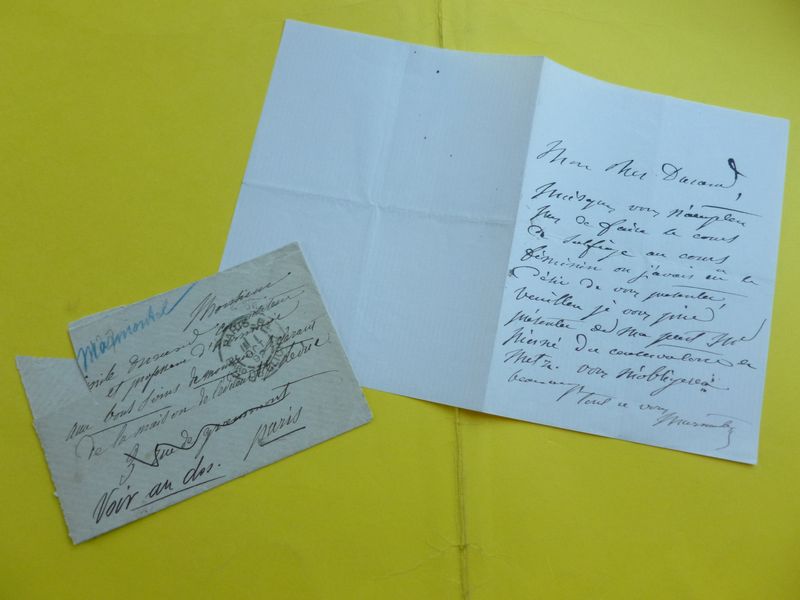 Marmontel
Monsieur
Durand
et professeur d'harmonie
aux bons soins de monsieur
de la maison de
3 rue de grammont
Voir au dos. paris
Mon cher Durand,
puisque vous n'acceptez
pas de faire le cours
de solfège au cours
féminin ou j'avais eu le
désir de vous présenter,
veuillez je vous prie
présenter de ma part Mr
pierné du conservatoire de
Metz. vous m'obligerez
beaucoup
tout a vous
Marmontel